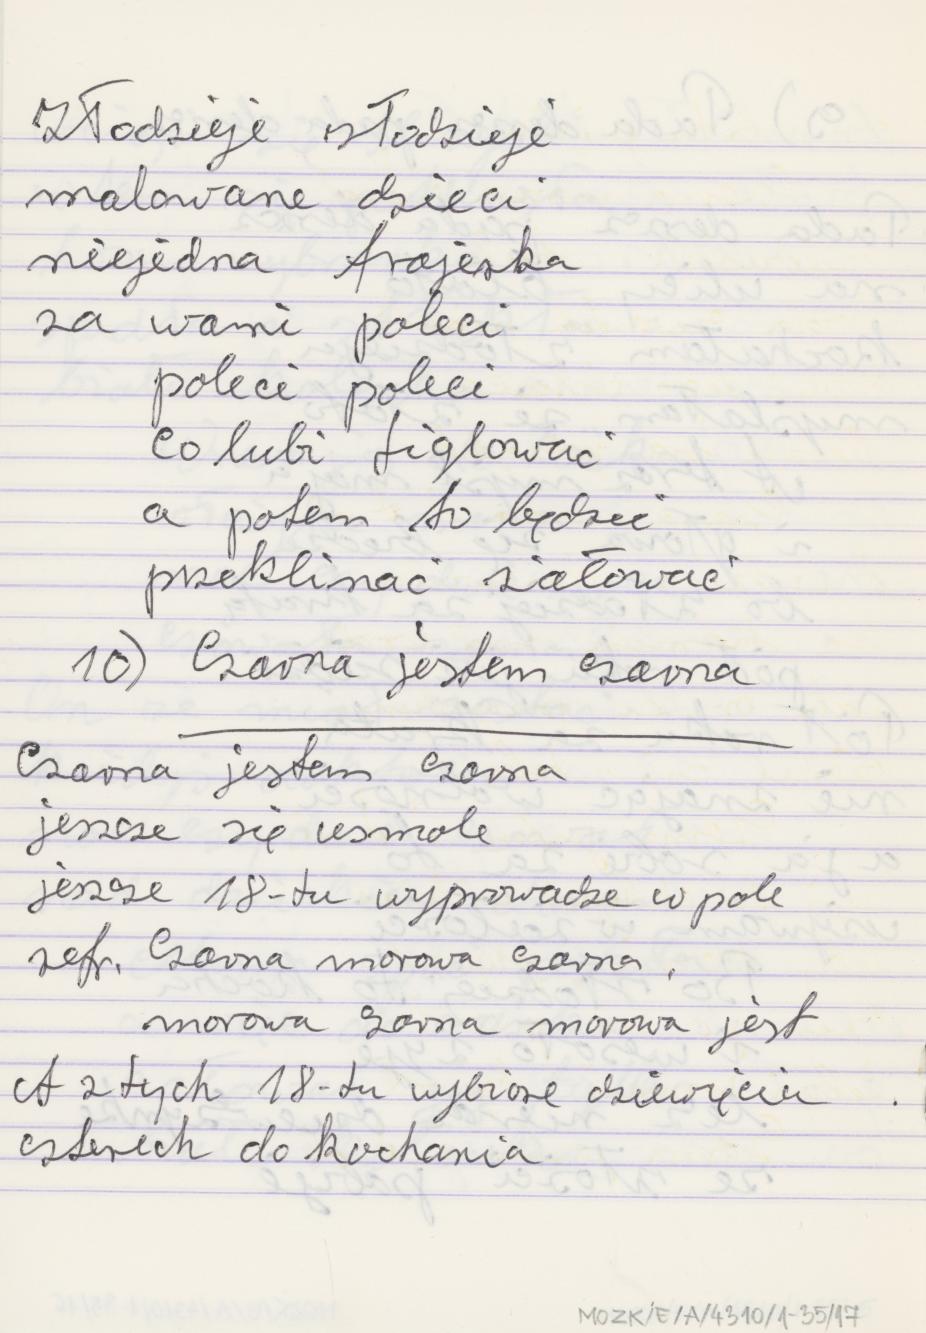 Złodzieje złodzieje
malowane dzieci
niejedna frajerka
za wami poleci
poleci poleci
co lubi figlować
a potem to będzie
przeklinać żałować
10) Czarna jestem czarna
Czarna jestem czarna
jeszcze się usmole
jeszcze 18-tu wyprowadze w pole
refr. Czarna morowa czarna,
morowa czarna morowa jest
A z tych 18-tu wybiore dziewięciu
czterech do kochania
MOZK/E/A/4310/1-35/17